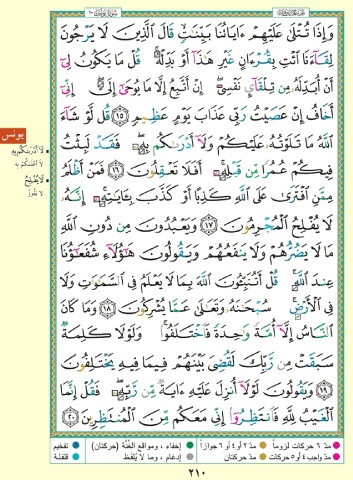 سُورَةُ يُونُسَ ١٠
وَإِذَا تُتْلَىٰ عَلَيْهِمْ ءَايَاتُنَا بَيِّنَٰتٍۙ قَالَ ٱلَّذِينَ لَا يَرْجُونَ
لِقَآءَنَا ٱئْتِ بِقُرْءَانٍ غَيْرِ هَٰذَآ أَوْ بَدِّلْهُۚ قُلْ مَا يَكُونُ لِىٓ
أَنْ أُبَدِّلَهُۥ مِن تِلْقَآئِ نَفْسِىٓۖ إِنْ أَتَّبِعُ إِلَّا مَا يُوحَىٰٓ إِلَىَّۖ إِنِّىٓ
أَخَافُ إِنْ عَصَيْتُ رَبِّى عَذَابَ يَوْمٍ عَظِيمٍ ١٥ قُل لَّوْ شَآءَ
ٱللَّهُ مَا تَلَوْتُهُۥ عَلَيْكُمْ وَلَآ أَدْرَىٰكُم بِهِۦۖ فَقَدْ لَبِثْتُ
فِيكُمْ عُمُرًا مِّن قَبْلِهِۦٓۚ أَفَلَا تَعْقِلُونَ ١٦ فَمَنْ أَظْلَمُ
مِمَّنِ ٱفْتَرَىٰ عَلَى ٱللَّهِ كَذِبًا أَوْ كَذَّبَ بِـَٔايَٰتِهِۦٓۚ إِنَّهُۥ
لَا يُفْلِحُ ٱلْمُجْرِمُونَ ١٧ وَيَعْبُدُونَ مِن دُونِ ٱللَّهِ
مَا لَا يَضُرُّهُمْ وَلَا يَنفَعُهُمْ وَيَقُولُونَ هَٰٓؤُلَآءِ شُفَعَٰٓؤُنَا
عِندَ ٱللَّهِۚ قُلْ أَتُنَبِّـُٔونَ ٱللَّهَ بِمَا لَا يَعْلَمُ فِى ٱلسَّمَٰوَٰتِ وَلَا
فِى ٱلْأَرْضِۚ سُبْحَٰنَهُۥ وَتَعَٰلَىٰ عَمَّا يُشْرِكُونَ ١٨ وَمَا كَانَ
ٱلنَّاسُ إِلَّآ أُمَّةً وَٰحِدَةً فَٱخْتَلَفُوا۟ۚ وَلَوْلَا كَلِمَةٌ
سَبَقَتْ مِن رَّبِّكَ لَقُضِىَ بَيْنَهُمْ فِيمَا فِيهِ يَخْتَلِفُونَ
١٩ وَيَقُولُونَ لَوْلَآ أُنزِلَ عَلَيْهِ ءَايَةٌ مِّن رَّبِّهِۦۖ فَقُلْ إِنَّمَا
ٱلْغَيْبُ لِلَّهِ فَٱنتَظِرُوٓا۟ إِنِّى مَعَكُم مِّنَ ٱلْمُنتَظِرِينَ ٢٠
يونس
لَا أَدْرَاكُم بِهِ
لَا أَعْلَمَكُم بِهِ
لَا يُفْلِحُ
لَا يَفُوزُ
مدّ ٦ حركات لزوماً
مدّ ٢ أو ٤ أو ٦ جوازاً
إخفاء، ومواقع الغُنَّة (حركتان)
تفخيم
مدّ واجب ٤ أو ٥ حركات
مدّ حركتان
إدغام، وما لا يُلفظ
قلقلة
٢١٠